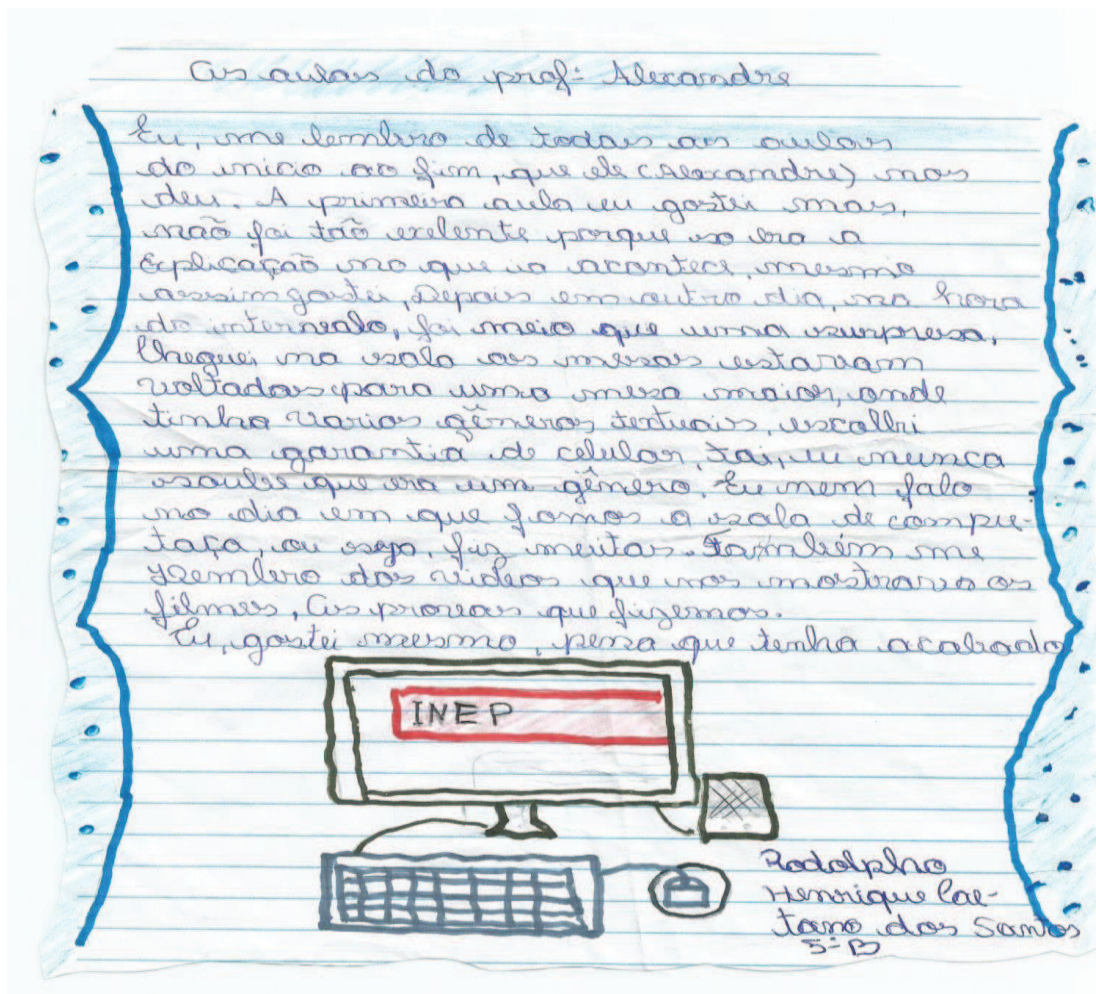 As aulas do prof: Alexandre
Eu, me lembro de todas as aulas
do inicio ao fim, que ele (Alexandre) nos
deu. A primeira aula eu gostei mais,
não foi tão exelente porque so era a
Explicação no que ia acontece, mesmo
assim gostei, Depois em outro dia, na hora
do intervalo, foi meio que uma surpresa,
Cheguei na sala as mesas estavam
voltadas para uma mesa maior, onde
tinha varios gêneros textuais, escolhi
uma garantia de celular, tai, eu nunca
soube que era um gênero. Eu nem falo
no dia em que fomos a sala de compu-
taça, ou seja, fiz muitas. Também me
lembro dos videos que nos mostrava os
filmes, As provas que fizemos.
Eu, gostei mesmo, pena que tenha acabado
INEP
Rodolpho
Henrique Cae-
tano dos Santos
5ª B